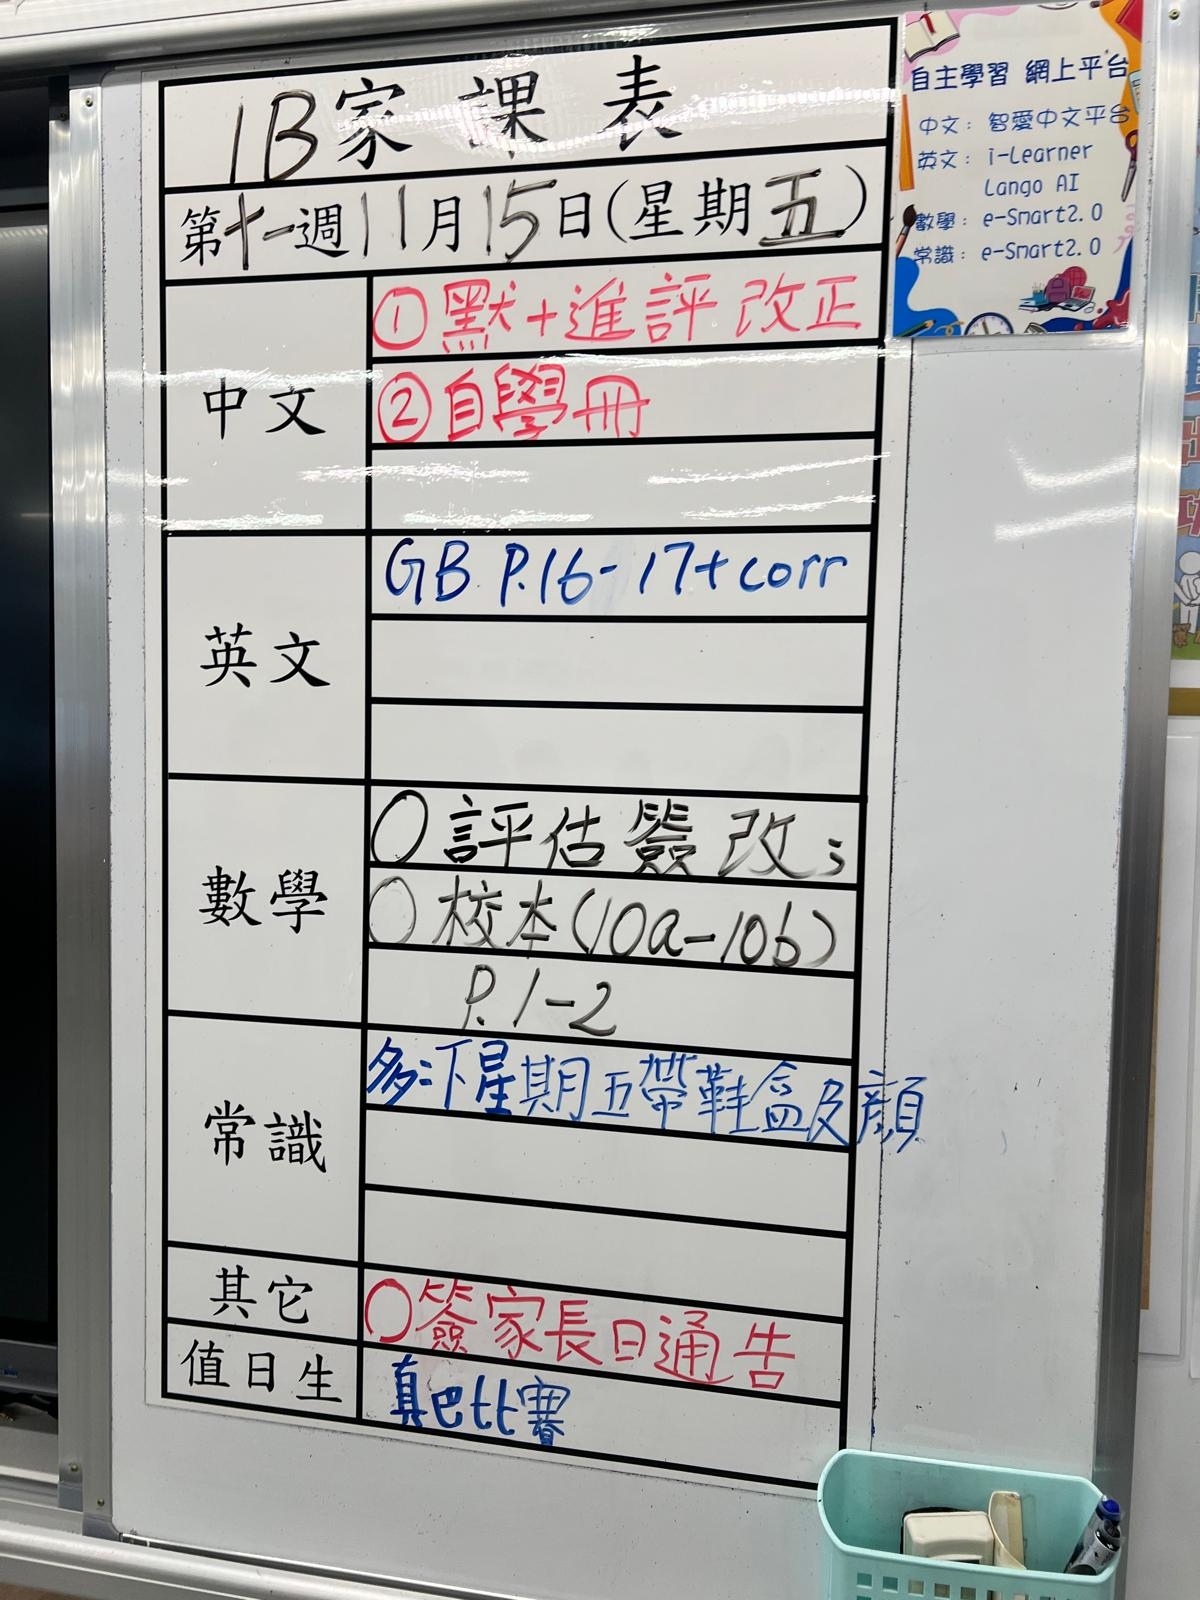 1B家課表
第十一週11月15日(星期五)
中文
①默+進評改正
②自學冊
英文
GB P.16-17+corr
數學
○評估簽改;
○校本(10a-10b)
P.1-2
常識
下星期五帶鞋盒及顏
其它
○簽家長日通告
值日生
比賽
自主學習 網上平台
中文: 智愛中文平台
英文: i-Learner
Lango AI
數學: e-Smart2.0
常識: e-Smart2.0